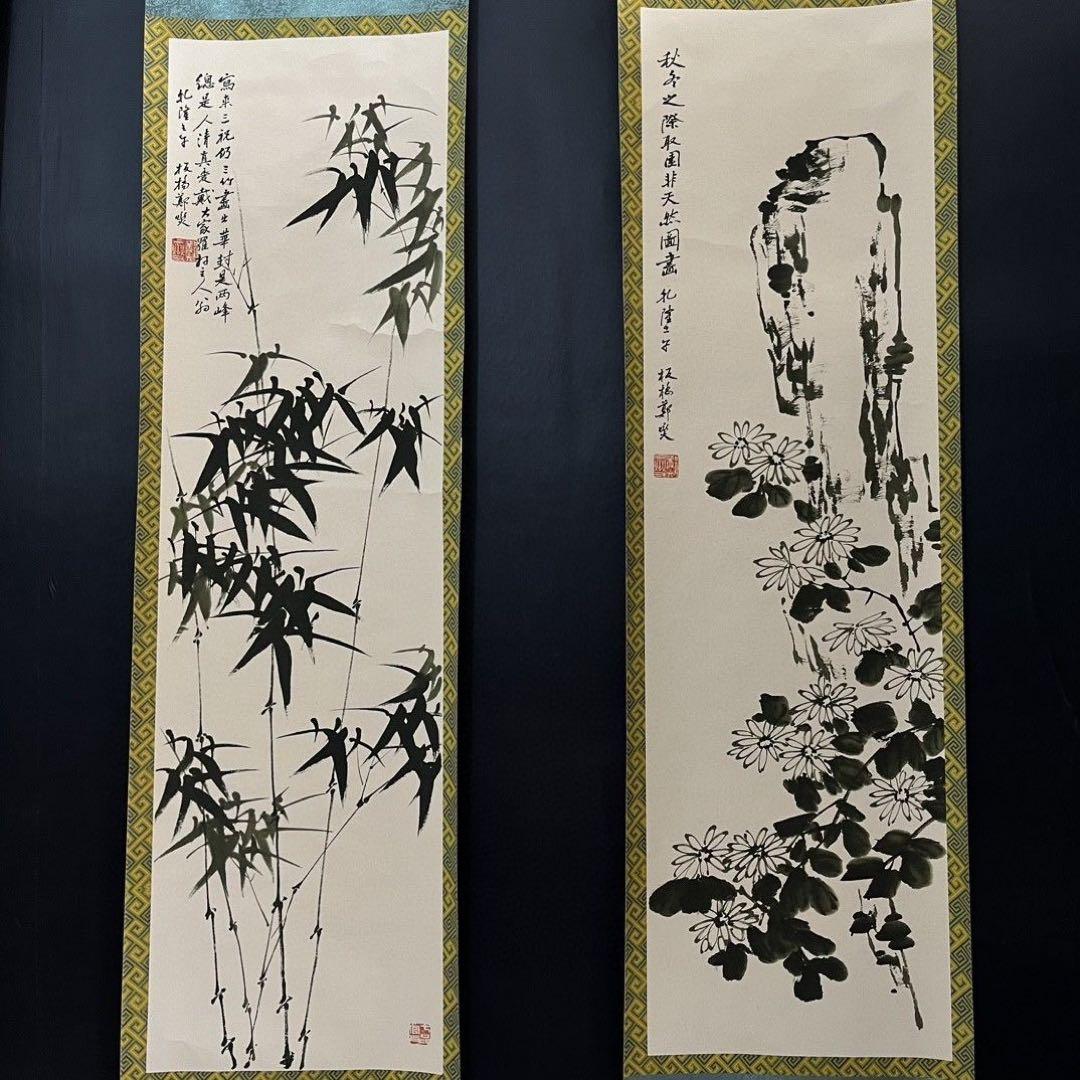 寫來三祝仍三竹畫出華封是兩峰
總是人清真愛戴大家羅拜主人翁
乾隆壬午 板橋鄭燮
秋冬之際取非天然圖畫 乾隆壬午 板橋鄭燮